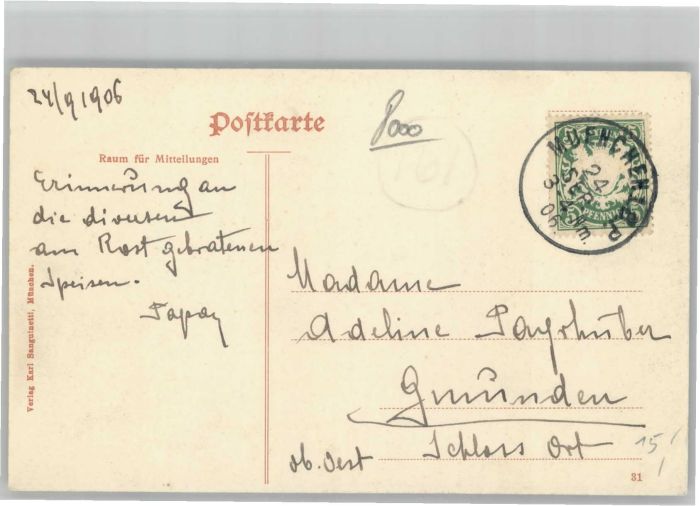 24/9 1906
Postkarte
8000
Raum für Mitteilungen
Erinnerung an
die diversen
am Rost gebratenen
Speisen.
Verlag Karl Sanguinetti, München.
MUENCHEN
24
SEP
3-4 Nm.
06
5 PFENNIG
Madame
Adeline Payrhuber
Gmünden
Schloss Ort
ob. Oest
15
31